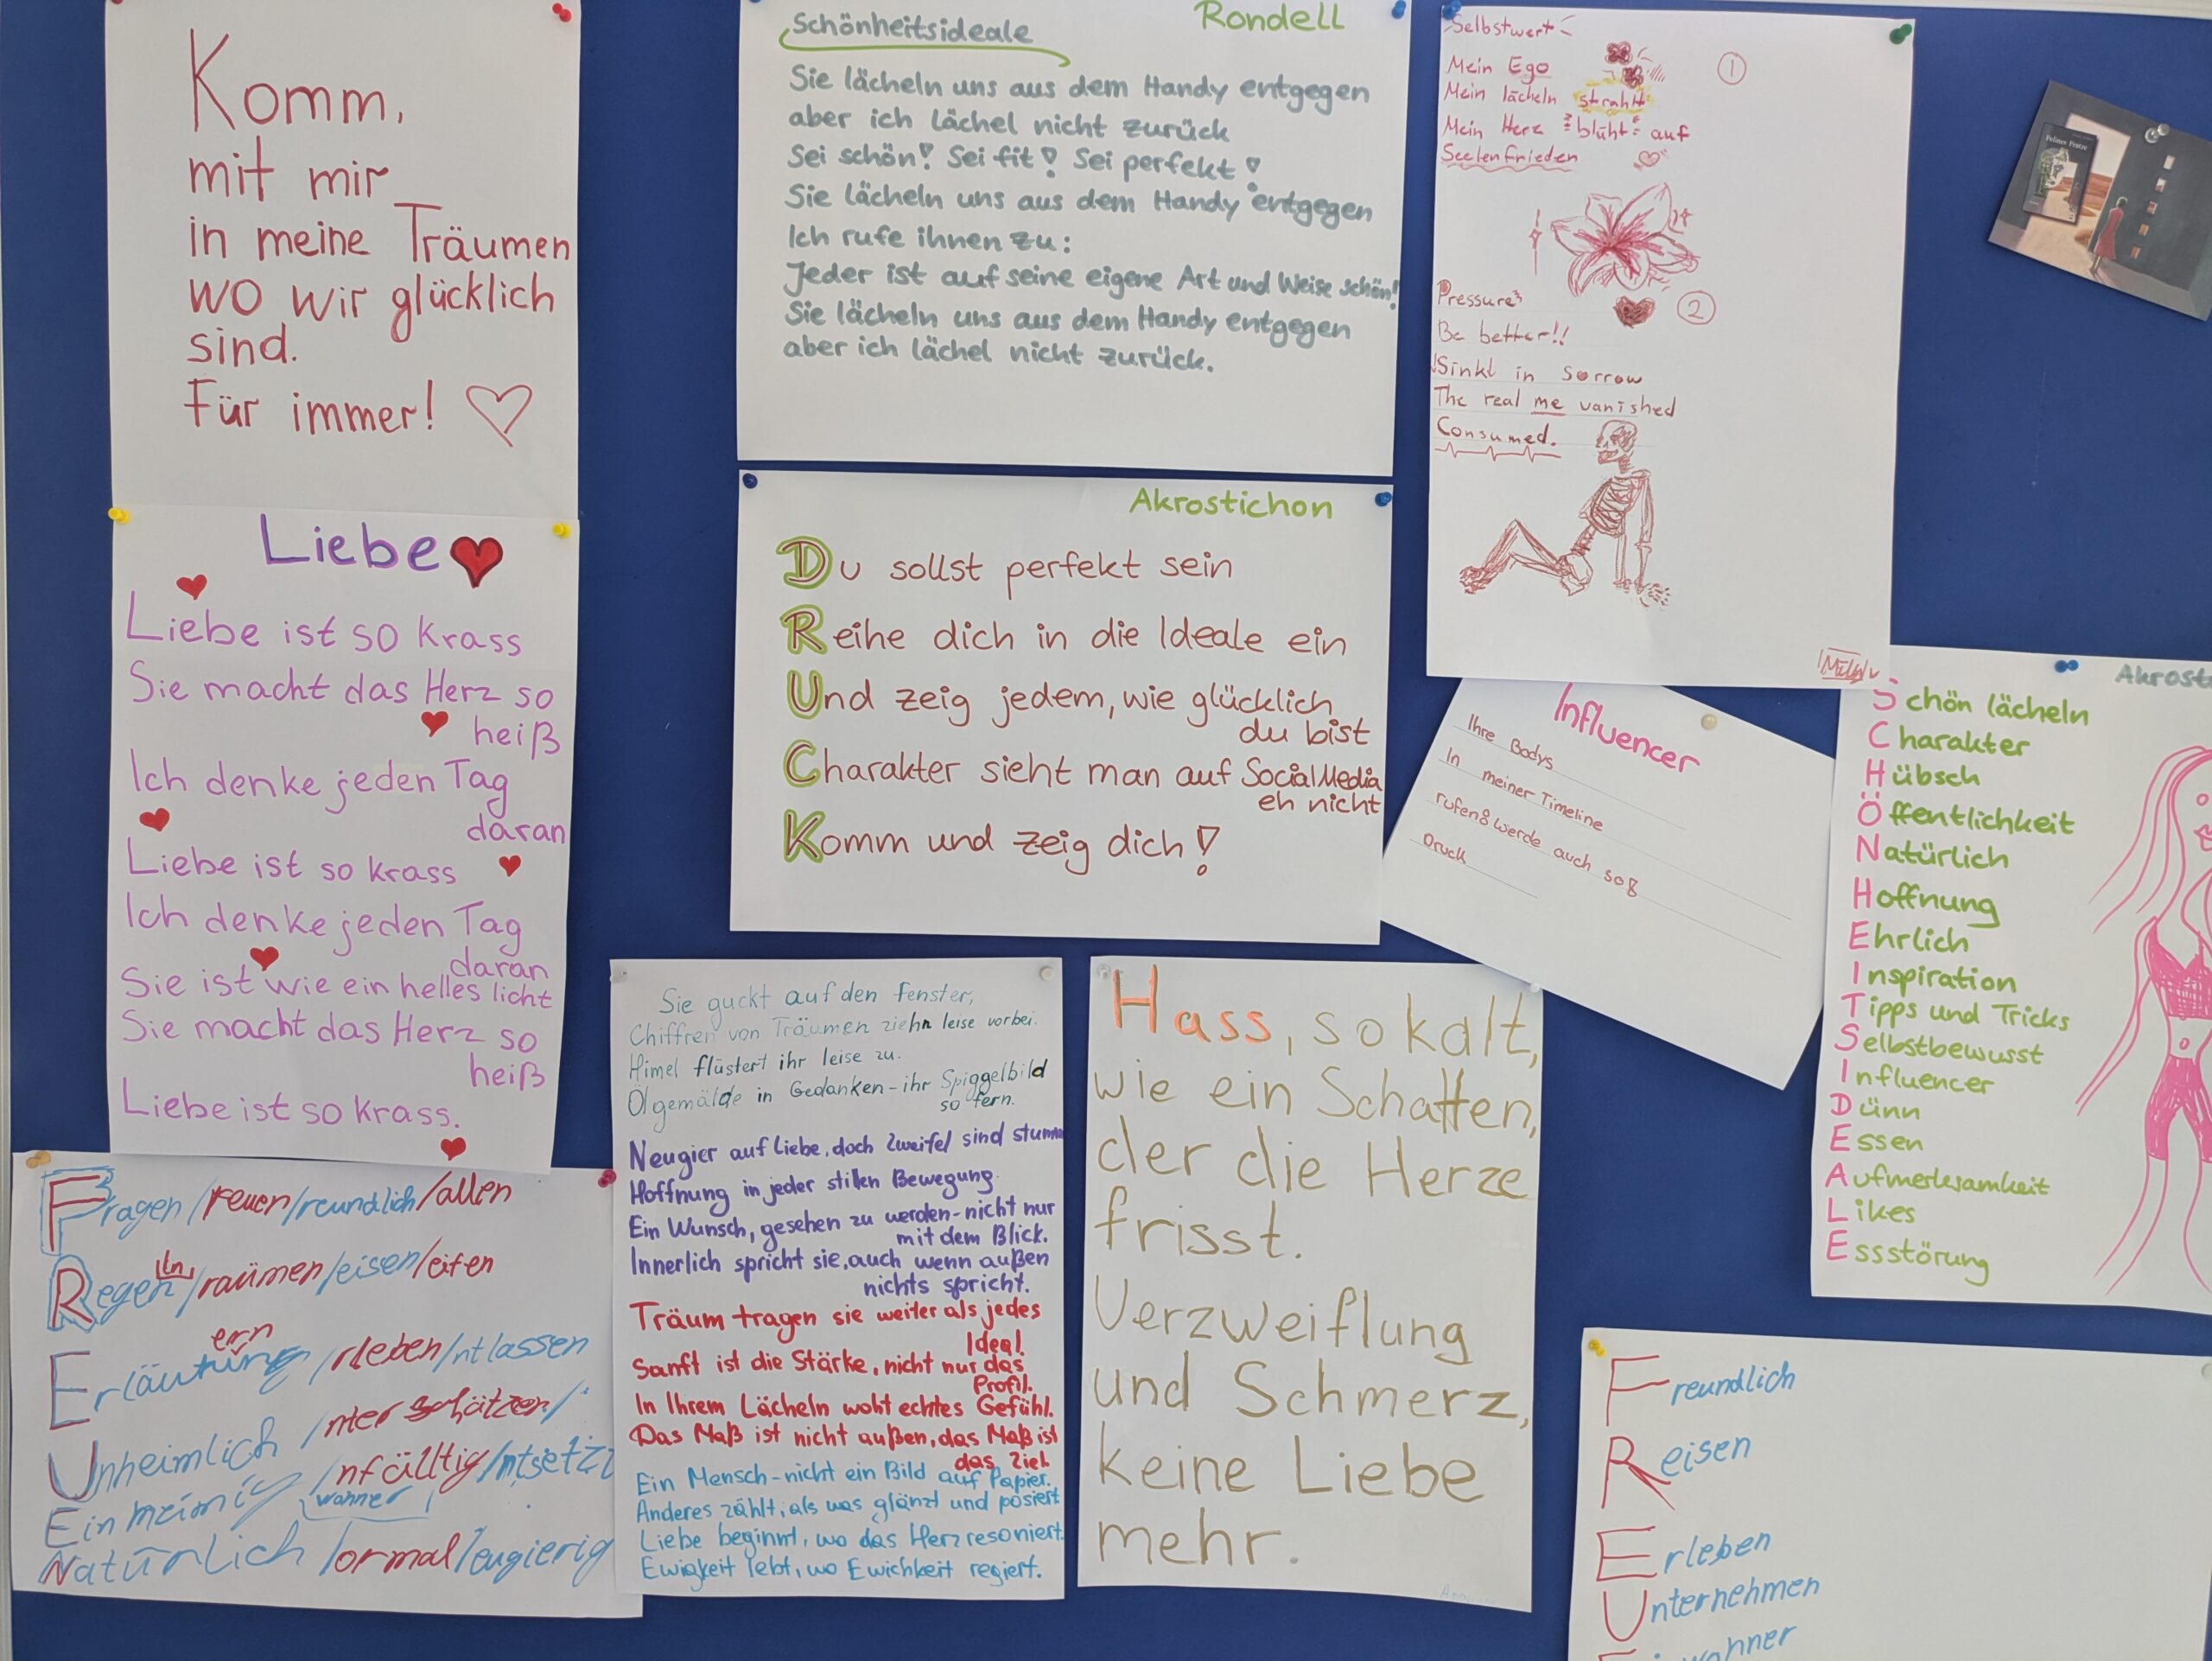 Komm,
mit mir
in meine Träumen
wo wir glücklich
sind.
Für immer!
Liebe
Liebe ist so krass
Sie macht das Herz so
heiß
Ich denke jeden Tag
daran
Liebe ist so krass
Ich denke jeden Tag
daran
Sie ist wie ein helles licht
Sie macht das Herz so
heiß
Liebe ist so krass.
Fragen/reuen/reundlich/allen
Regen/raümen/eisen/eifen
ern
/rleben/ntlassen
Unheimlich
wohner
Natürlich/ormal/eugierig
Schönheitsideale
Rondell
Sie lächeln uns aus dem Handy entgegen
aber ich lächel nicht zurück
Sei schön! Sei fit! Sei perfekt!
Sie lächeln uns aus dem Handy entgegen
Ich rufe ihnen zu:
Jeder ist auf seine eigene Art und Weise schön!
Sie lächeln uns aus dem Handy entgegen
aber ich lächel nicht zurück.
Akrostichon
Du sollst perfekt sein
Reihe dich in die Ideale ein
Und zeig jedem, wie glücklich
du bist
Charakter sieht man auf Social Media
eh nicht
Komm und zeig dich!
Sie guckt auf den Fenster,
Chiffren von Träumen ziehn leise vorbei.
Himel flüstert ihr leise zu.
Ölgemälde in Gedanken-ihr Spiggelbild
so fern.
Neugier auf Liebe, doch Zweifel sind stumm
Hoffnung in jeder stillen Bewegung.
Ein Wunsch, gesehen zu werden-nicht nur
mit dem Blick.
Innerlich spricht sie, auch wenn außen
nichts spricht.
Träum tragen sie weiter als jedes
Ideal.
Sanft ist die Stärke, nicht nur das
Profil.
In Ihrem Lächeln woht echtes Gefühl.
Das Maß ist nicht außen, das Maß ist
das Ziel.
Ein Mensch-nicht ein Bild auf Papier.
Anderes zählt, als was glänzt und posiert
Liebe beginnt, wo das Herz resoniert.
Ewigkeit lebt, wo Ewichkeit regiert.
Hass, so kalt,
wie ein Schatten,
der die Herze
frisst.
Verzweiflung
und Schmerz,
keine Liebe
mehr.
Selbstwert
Mein Ego
1
Mein lächeln strahlt
Mein Herz blüht auf
Seelenfrieden
Pressure
2
Be better!!
Sinkl in sorrow
The real me vanished
Consumed.
Influencer
Ihre Bodys
In meiner Timeline
rufen: werde auch so!
Druck
Akrost
Schön lächeln
Charakter
Hübsch
Öffentlichkeit
Natürlich
Hoffnung
Ehrlich
Inspiration
Tipps und Tricks
Selbstbewusst
Influencer
Dünn
Essen
Aufmerksamkeit
Likes
Essstörung
Freundlich
Reisen
Erleben
Unternehmen